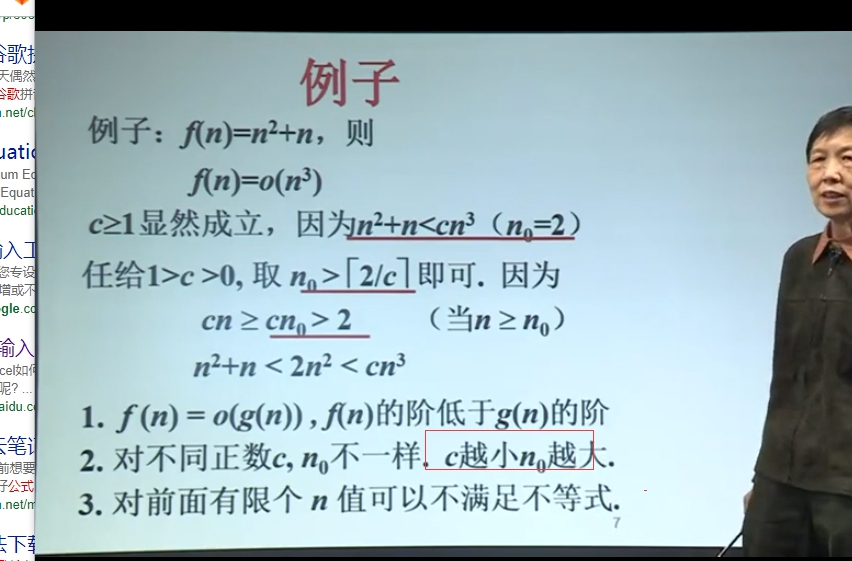 例子
例子：f(n)=n²+n，则
f(n)=o(n³)
c≥1显然成立，因为n²+n<cn³（n₀=2）
任给1>c >0, 取 n₀ >⌈2/c⌉ 即可. 因为
cn ≥ cn₀ > 2 （当n ≥ n₀）
n²+n < 2n² < cn³
1. f (n) = o(g(n)) , f(n)的阶低于g(n)的阶
2. 对不同正数c, n₀不一样. c越小n₀越大.
3. 对前面有限个 n 值可以不满足不等式.
7
天偶然
谷歌拼
.net/cl
uatic
um Ec
Equati
ducati
输入工
您专设
增或不
gle.co
输入
cel如何
呢? ...
aidu.cc
去笔记
前想要
子公式
.net/m
去下载